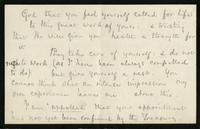 God that you feel yourself called for life
to this great work of yours. & trusting
that He will give you health & strength for
it
Pray take care of yourself: & do not
work (as I have been always compelled
to do) but give yourself a rest. You
cannot think what an intense impression my
own experience leaves me above this.
I am appalled that your appointment
has not yet been confirmed by the Treasury.